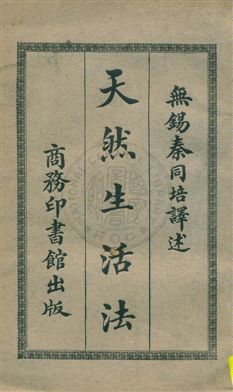 無錫秦同培譯述
天然生活法
商務印書館出版